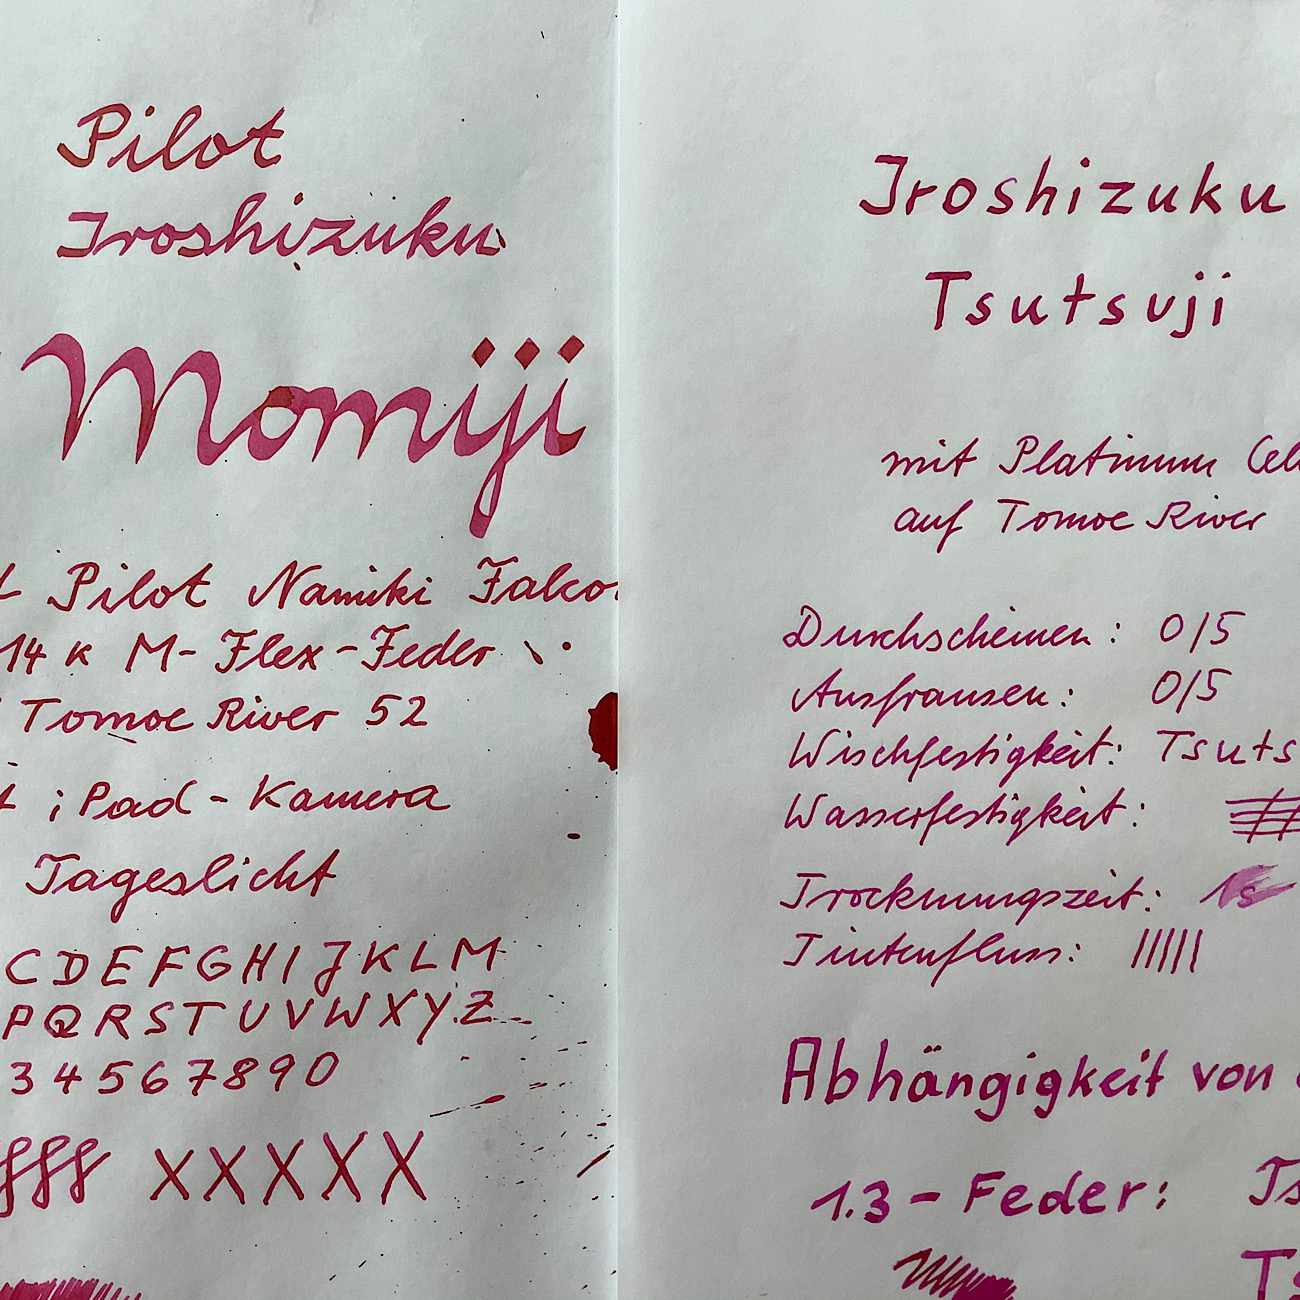 Pilot
Iroshizuku
Momiji
Pilot Namiki Falco
14 K M-Flex-Feder
Tomoe River 52
iPad-Kamera
Tageslicht
C D E F G H I J K L M
P Q R S T U V W X Y Z
3 4 5 6 7 8 9 0
X X X X X
Iroshizuku
Tsutsuji
mit Platinum
auf Tomoe River
Durchscheinen: 0/5
Ausfransen: 0/5
Wischfestigkeit: Tsuts
Wasserfestigkeit:
Trocknungszeit: 1s
Tintenfluss: |||||
Abhängigkeit von
1.3 - Feder: Ts
Ts